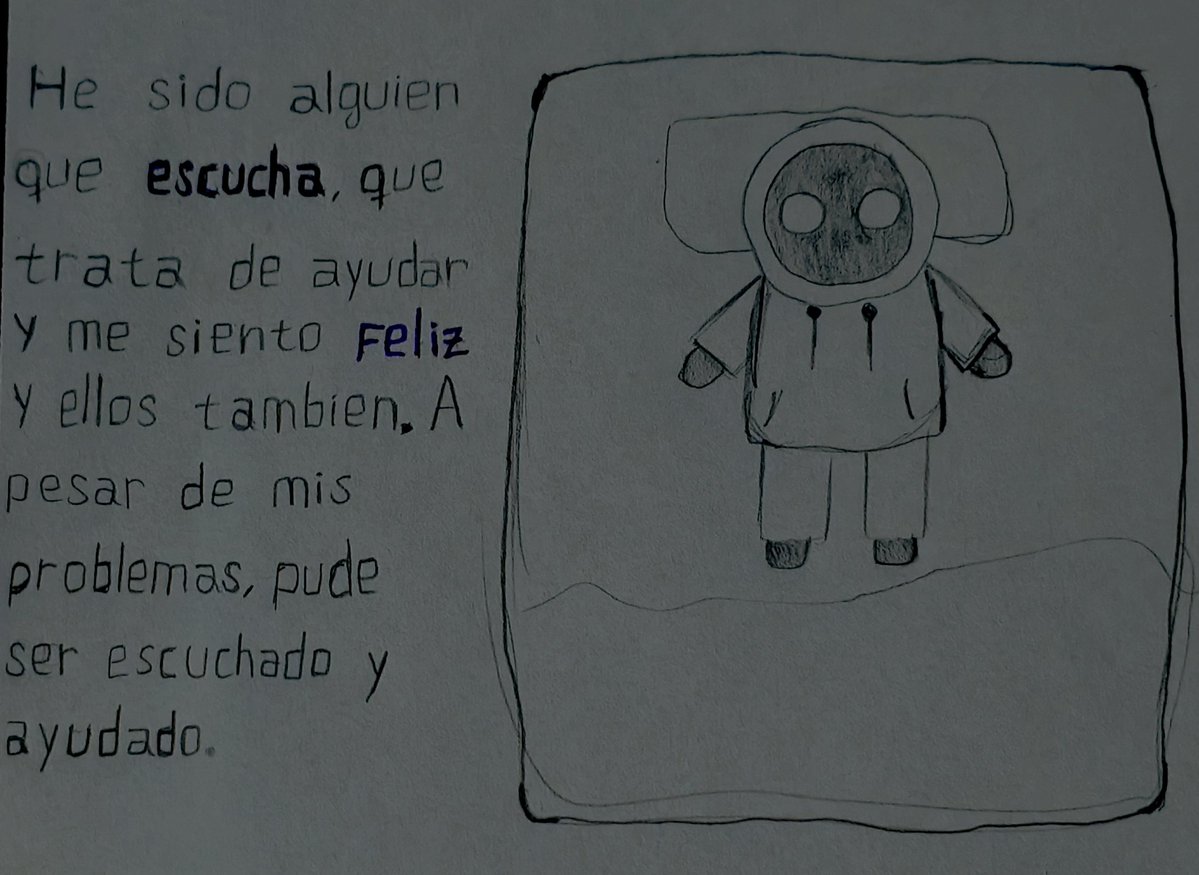 He sido alguien
que escucha, que
trata de ayudar
y me siento Feliz
y ellos tambien. A
pesar de mis
problemas, pude
ser escuchado y
ayudado.